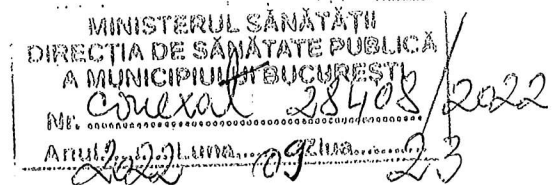 MINISTERUL SĂNĂTĂȚII
DIRECȚIA DE SĂNĂTATE PUBLICĂ
A MUNICIPIULUI BUCUREȘTI
Nr. conexat 28408/2022
Anul 2022 Luna 09 Ziua 23